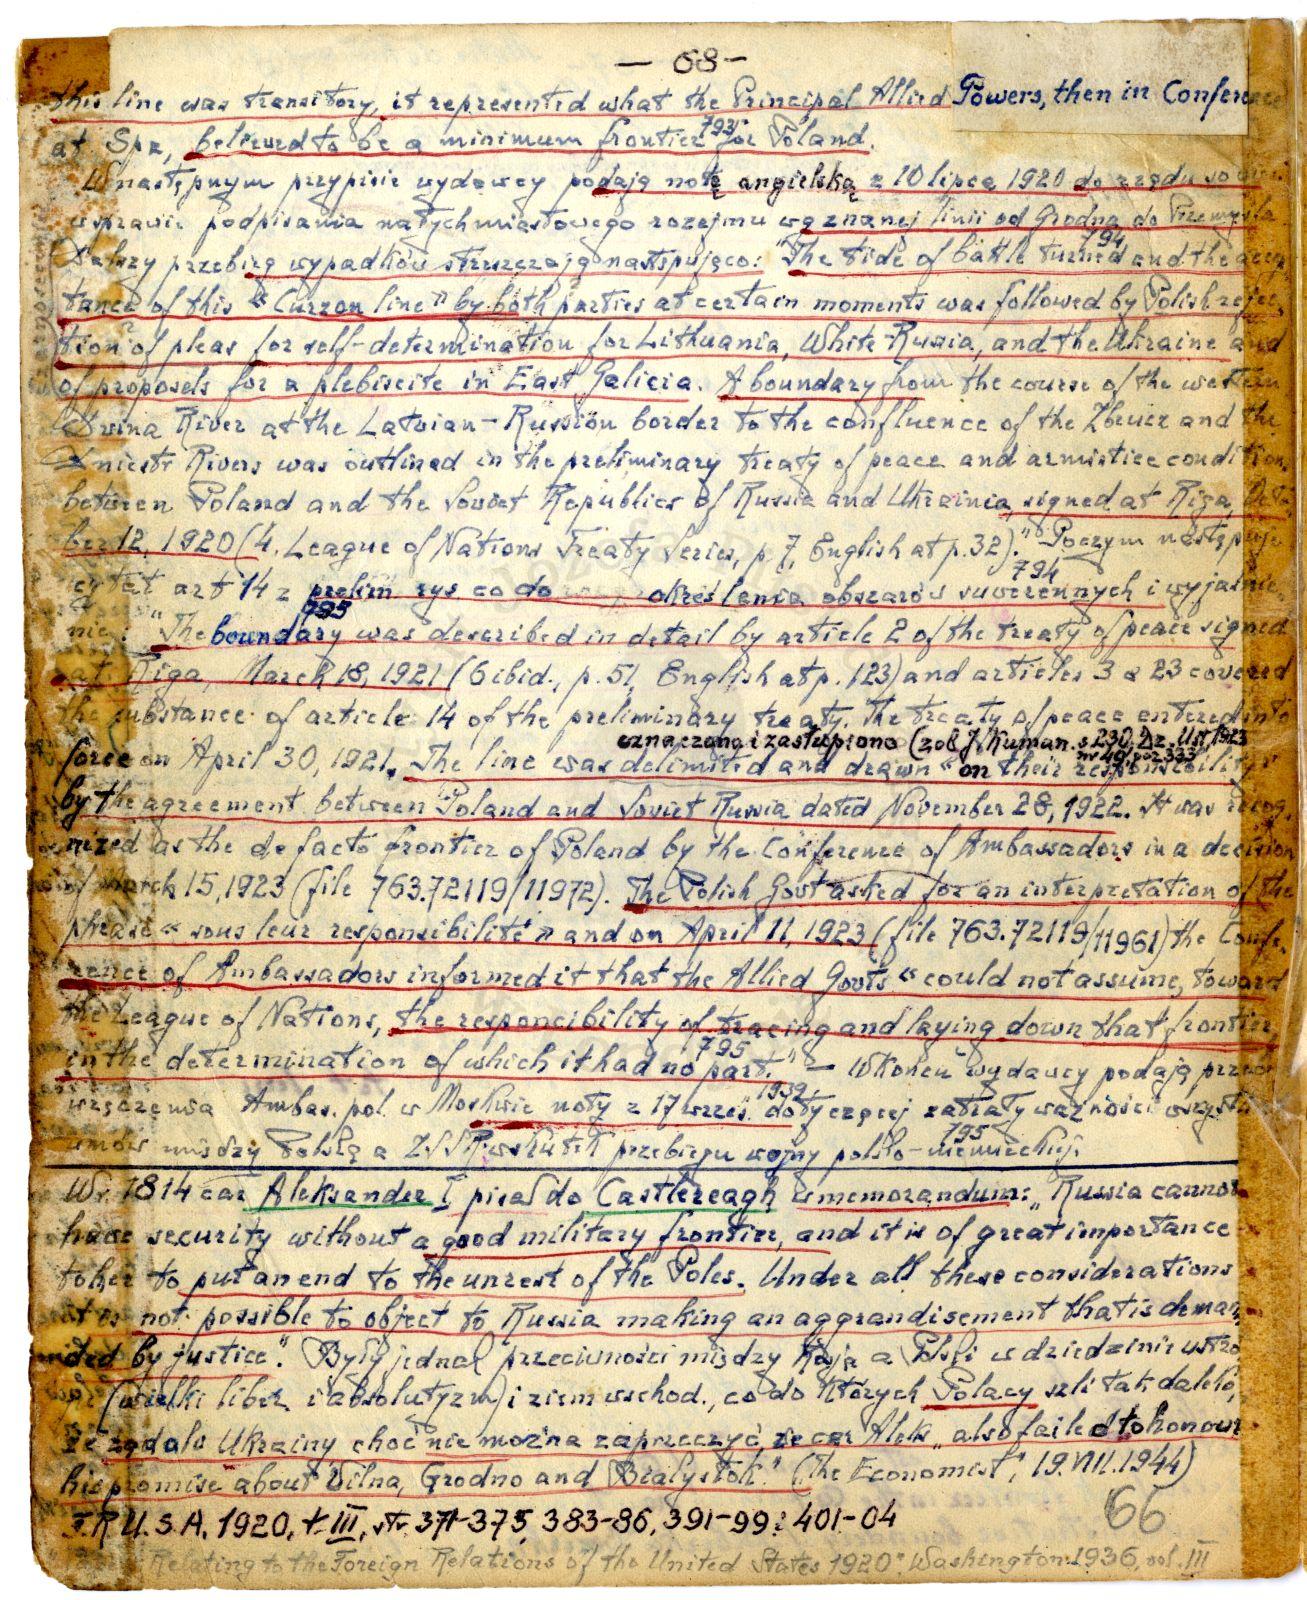 — 68 —
this line was transitory, it represented what the Principal Allied Powers, then in Conference
at Spa, believed to be a minimum frontier 793 for Poland.
W następnym przypisie wydawcy podają notę angielską z 10 lipca 1920 do rządu
w sprawie podpisania natychmiastowego rozejmu wg znanej linii od Grodna do Przemyśla 794
Dalszy przebieg wypadków streszczają następująco: "The tide of battle turned and the accep-
tance of this « Curzon line » by both parties at certain moments was followed by Polish rejec-
tion of pleas for self-determination for Lithuania, White Russia, and the Ukraine and
of proposels for a plebiscite in East Galicia. A boundary from the course of the western
Dvina River at the Latvian–Russian border to the confluence of the Zbrucz and the
Dniestr Rivers was outlined in the preliminary treaty of peace and armistice condition
between Poland and the Soviet Republics of Russia and Ukrainia, signed at Riga, Octo-
ber 12, 1920 (4. League of Nations Treaty Series, p. 7, English at p. 32)." 794 Poczym następuje
cytat art 14 z prelim. rys co do określenia obszarów suwerennych i wyjaśnie-
nie: 795 "The boundary was described in detail by article 2 of the treaty of peace signed
at Riga, March 18, 1921 (6 ibid., p. 51, English at p. 123) and articles 3 a 23 covered
the substance of article 14 of the preliminary treaty. The treaty of peace entered into
oznaczona i zastąpiono (zob J. Kuman. s 230, Dz. Ust. 1923
nr 49, poz 333
force on April 30, 1921. The line was delimited and drawn "on their responsibility"
by the agreement between Poland and Soviet Russia dated November 28, 1922. It was recog-
nized as the de facto frontier of Poland by the Conference of Ambassadors in a decision
of March 15, 1923 (file 763.72119/11972). The Polish Govt asked for an interpretation of the
phrase « sous leur responsibilité » and on April 11, 1923 (file 763.72119/11961) the Confe-
rence of Ambassadors informed it that the Allied Govts "could not assume, toward
the League of Nations, the responcibility of tracing and laying down that frontier
in the determination of which it had no part." 795 — W końcu wydawcy podają
wręczenia Ambas. pol. w Moskwie noty z 17 wrześ. 1939 dotyczącej zatraty ważności
umów między Polską a ZSSR wskutek przebiegu wojny polsko-niemieckiej. 795
W r. 1814 car Aleksander I pisał do Castlereagh w memorandum: „Russia cannot
have security without a good military frontier, and it is of great importance
to her to put an end to the unrest of the Poles. Under all these considerations
it is not possible to object to Russia making an aggrandisement that is deman-
nded by justice". Były jednak przeciwności między Rosją a Polską w dziedzinie ustro-
(wielki liber. i absolutyzm) i ziem wschod., co do których Polacy szli tak daleko,
że żądali Ukrainy choć nie można zaprzeczyć, że car Aleks „also failed to honour
his promise about Wilna, Grodno and Białystok." („The Economist", 19.VIII.1944)
F.R.U.S.A. 1920, t. III, str. 371-375, 383-86, 391-99 i 401-04
66
Relating to the Foreign Relations of the United States 1920". Washington 1936, vol. III